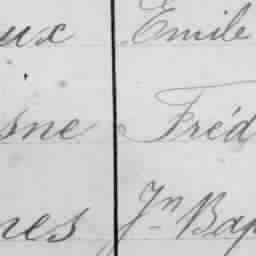 ux Emile
sne Fréd
nes Jn Bap